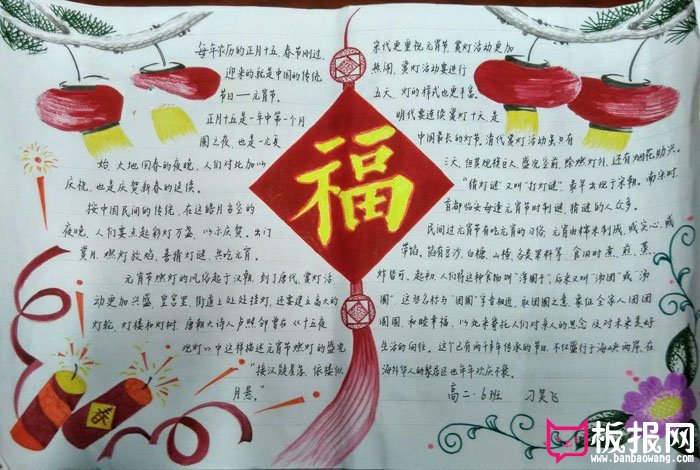 每年农历的正月十五,春节刚过,
迎来的就是中国的传统
节日——元宵节。
正月十五是一年中第一个月
圆之夜,也是一元复
始,大地回春的夜晚,人们对此加以
庆祝,也是庆贺新春的延续。
按中国民间的传统,在这皓月当空的
夜晚,人们要点起彩灯万盏,以示庆贺。出门
赏月,燃灯放焰,喜猜灯谜,共吃元宵。
元宵节燃灯的风俗起于汉朝,到了唐代,赏灯活
动更加兴盛,皇宫里、街道上处处挂灯,还要建立高大的
灯轮、灯楼和灯树,唐朝大诗人卢照邻曾在《十五夜
观灯》中这样描述元宵节燃灯的盛况
“接汉疑星落,依楼似
月悬。”
福
春
宋代更重视元宵节,赏灯活动更加
热闹,赏灯活动要进行
五天,灯的样式也更丰富。
明代要连续赏灯十天,是
中国最长的灯节,清代赏灯活动虽只有
三天,但其规模巨大,盛况空前,除燃灯外,还有烟花助兴。
“猜灯谜”又叫“打灯谜”,最早出现于宋朝。南宋时,
首都临安每逢元宵节时制谜,猜谜的人众多。
民间过元宵节有吃元宵的习俗,元宵由糯米制成,或实心,或
带馅。馅有豆沙、白糖、山楂、各类果料等,食用时煮、煎、蒸、
炸皆可,起初,人们将这种食物叫“浮圆子”,后来又叫“汤团”或“汤
圆”,这些名称与“团圆”字音相近,取团圆之意,象征全家人团团
圆圆,和睦幸福,以此来寄托人们对亲人的思念及对未来美好
生活的向往。这个已有两千多年传承的节日,不仅盛行于海峡两岸,在
海外华人的聚居区也年年欢庆不衰。
高二·6班 刁昊飞
板报网
www.banbaowang.com